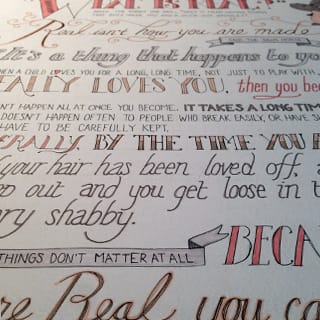 Real isn't how you are made
SAID THE SKIN HORSE.
IT'S a thing that happens to yo
WHEN A CHILD LOVES YOU FOR A LONG, LONG TIME, NOT JUST TO PLAY WITH,
ALLY LOVES YOU, then you bec
N'T HAPPEN ALL AT ONCE YOU BECOME. IT TAKES A LONG TIM
DOESN'T HAPPEN OFTEN TO PEOPLE WHO BREAK EASILY, OR HAVE S
HAVE TO BE CAREFULLY KEPT.
ERALLY, BY THE TIME YOU
your hair has been loved off, a
p out and you get loose in t
ry shabby.
THINGS DON'T MATTER AT ALL
BECA
re Real you ca